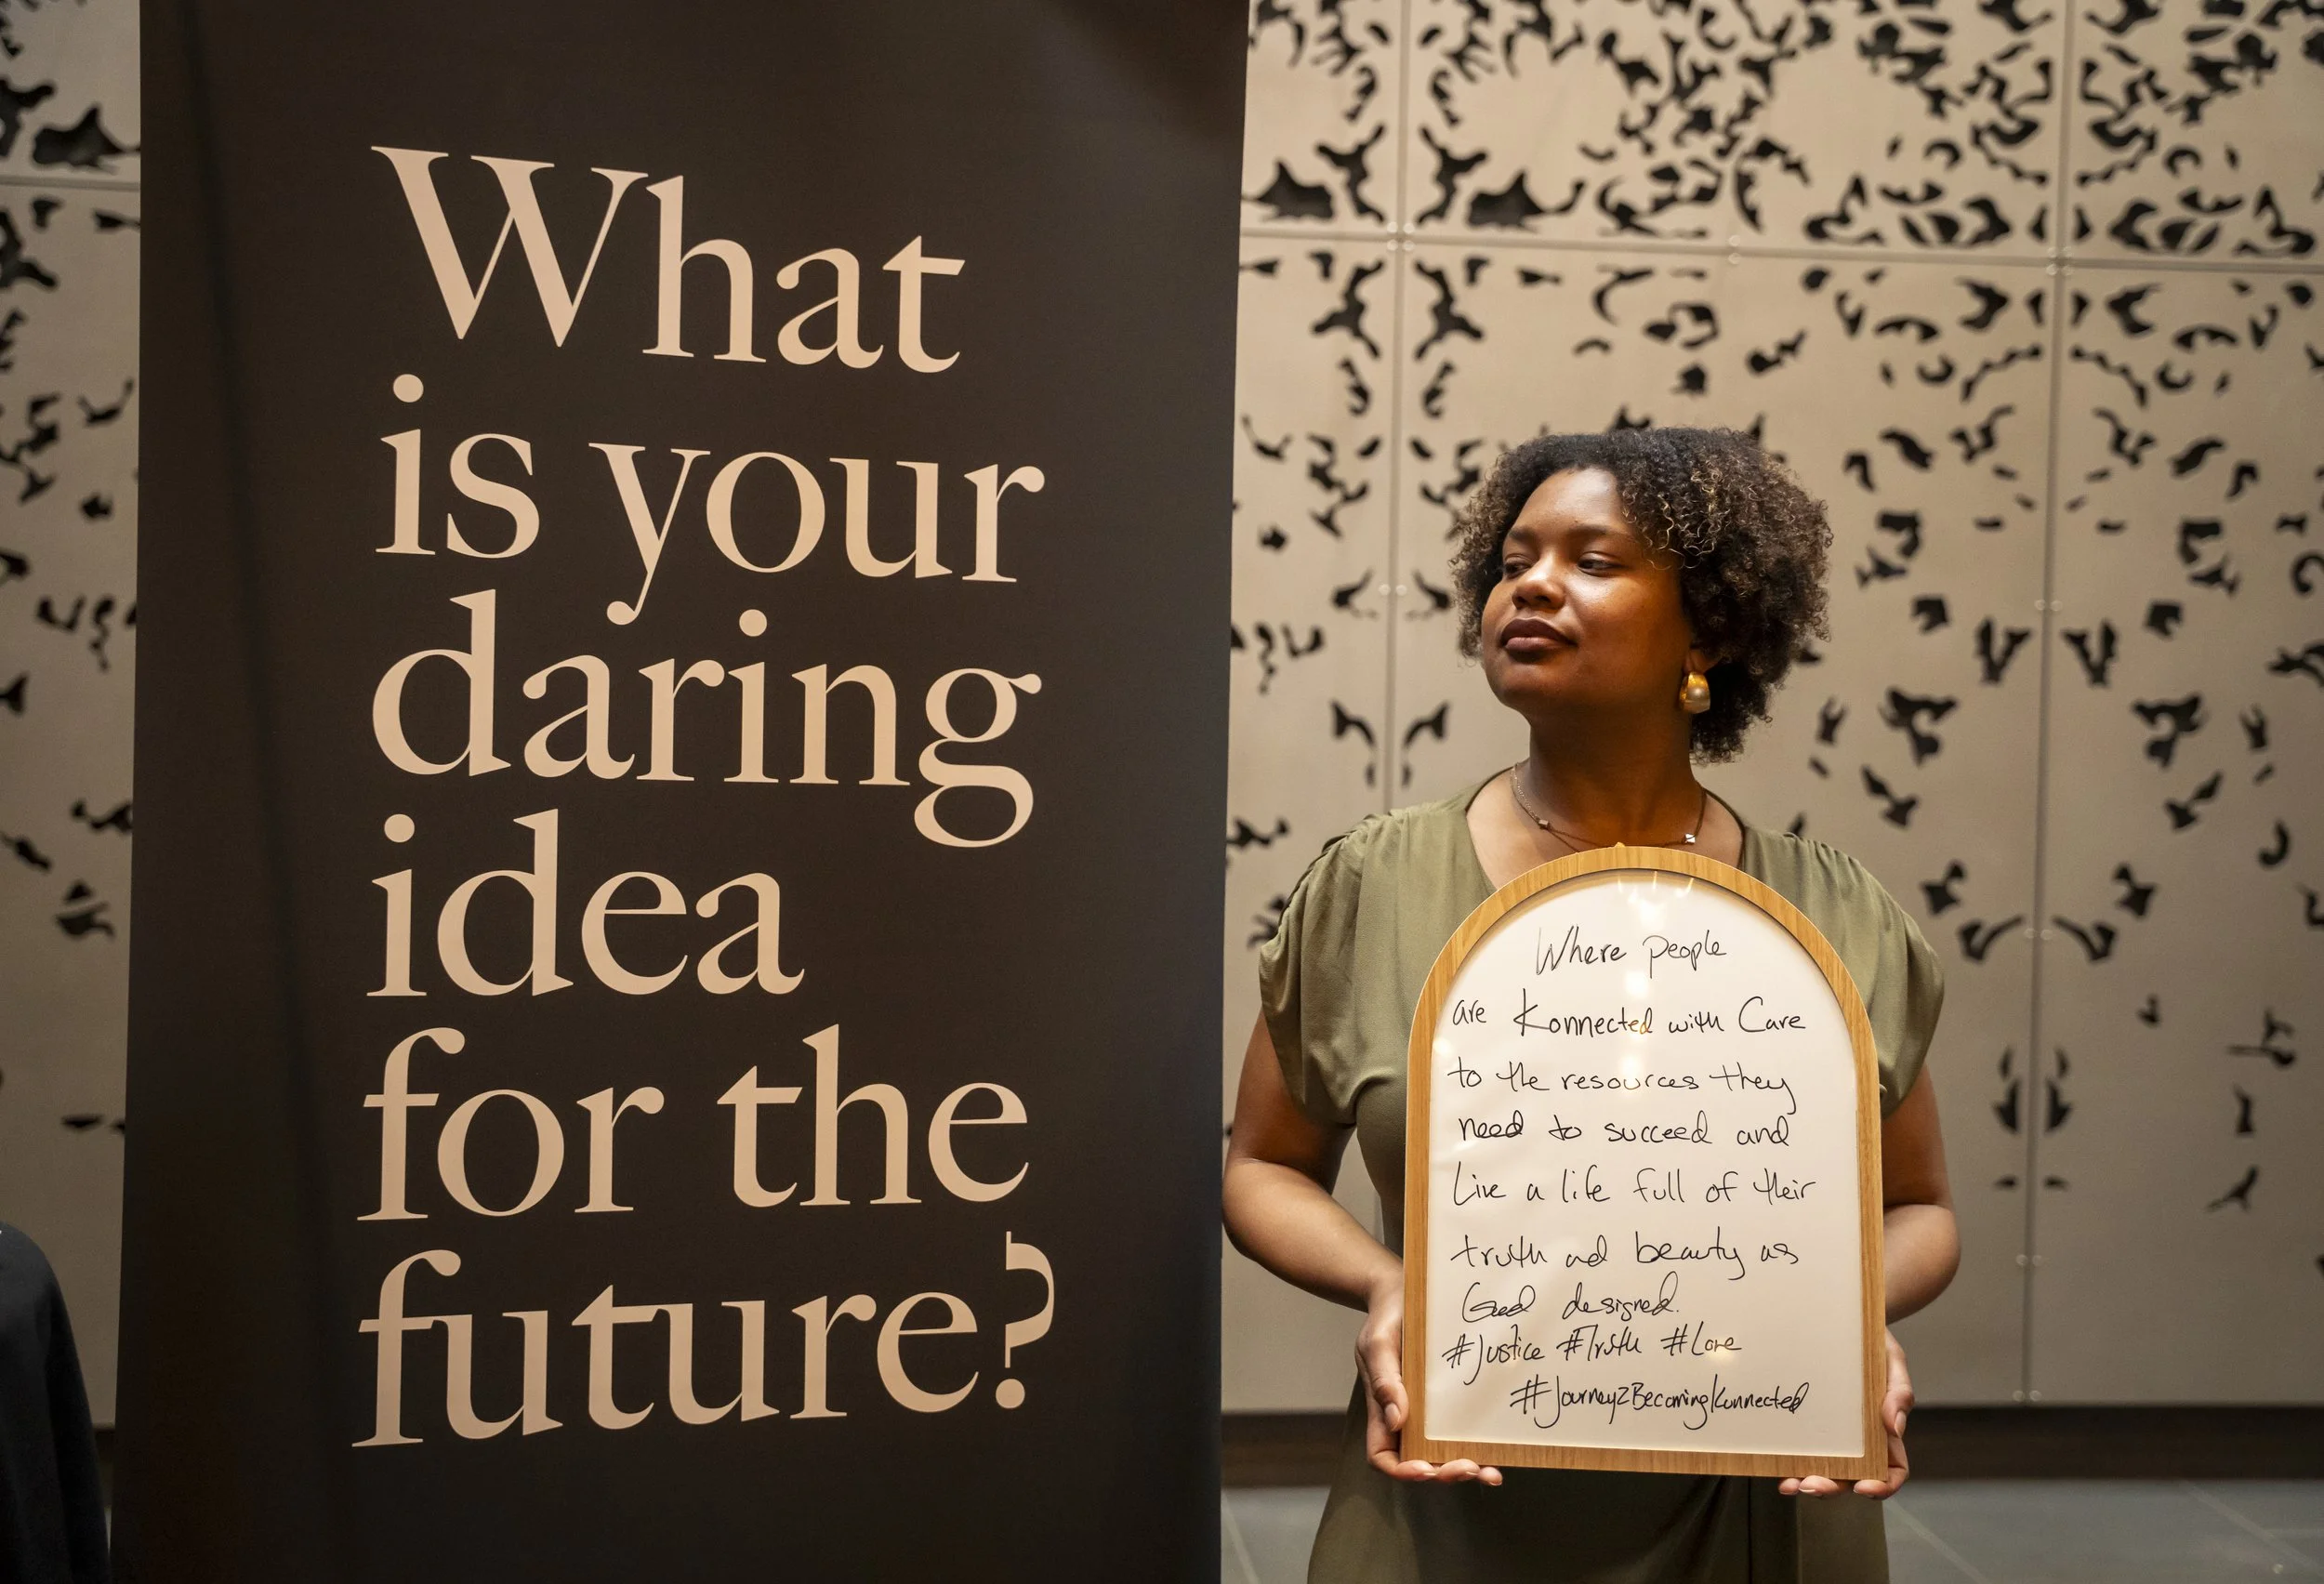 What
is your
daring
idea
for the
future?
Where people
are Konnected with Care
to the resources they
need to succeed and
Live a life full of their
truth ad beauty as
God designed.
#Justice #Truth #Love
#Journey2BecomingKonnected